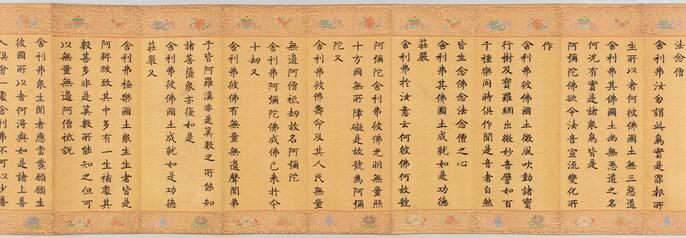 法念僧
舍利弗汝勿謂此鳥實是罪報所
生所以者何彼佛國土無三惡道
舍利弗其佛國土尚無惡道之名
何況有實是諸眾鳥皆是
阿彌陀佛欲令法音宣流變化所
作
舍利弗彼佛國土微風吹動諸寶
行樹及寶羅網出微妙音譬如百
千種樂同時俱作聞是音者自然
皆生念佛念法念僧之心
舍利弗其佛國土成就如是功德
莊嚴
舍利弗於汝意云何彼佛何故號
阿彌陀舍利弗彼佛光明無量照
十方國無所障礙是故號為阿彌
陀又
舍利弗彼佛壽命及其人民無量
無邊阿僧祇劫故名阿彌陀
舍利弗阿彌陀佛成佛已來於今
十劫又
舍利弗彼佛有無量無邊聲聞弟
子皆阿羅漢非是算數之所能知
諸菩薩眾亦復如是
舍利弗彼佛國土成就如是功德
莊嚴又
舍利弗極樂國土眾生生者皆是
阿鞞跋致其中多有一生補處其
數甚多非是算數所能知之但可
以無量無邊阿僧祇說
舍利弗眾生聞者應當發願願生
彼國所以者何得與如是諸上善
人俱會一處舍利弗不可以少善